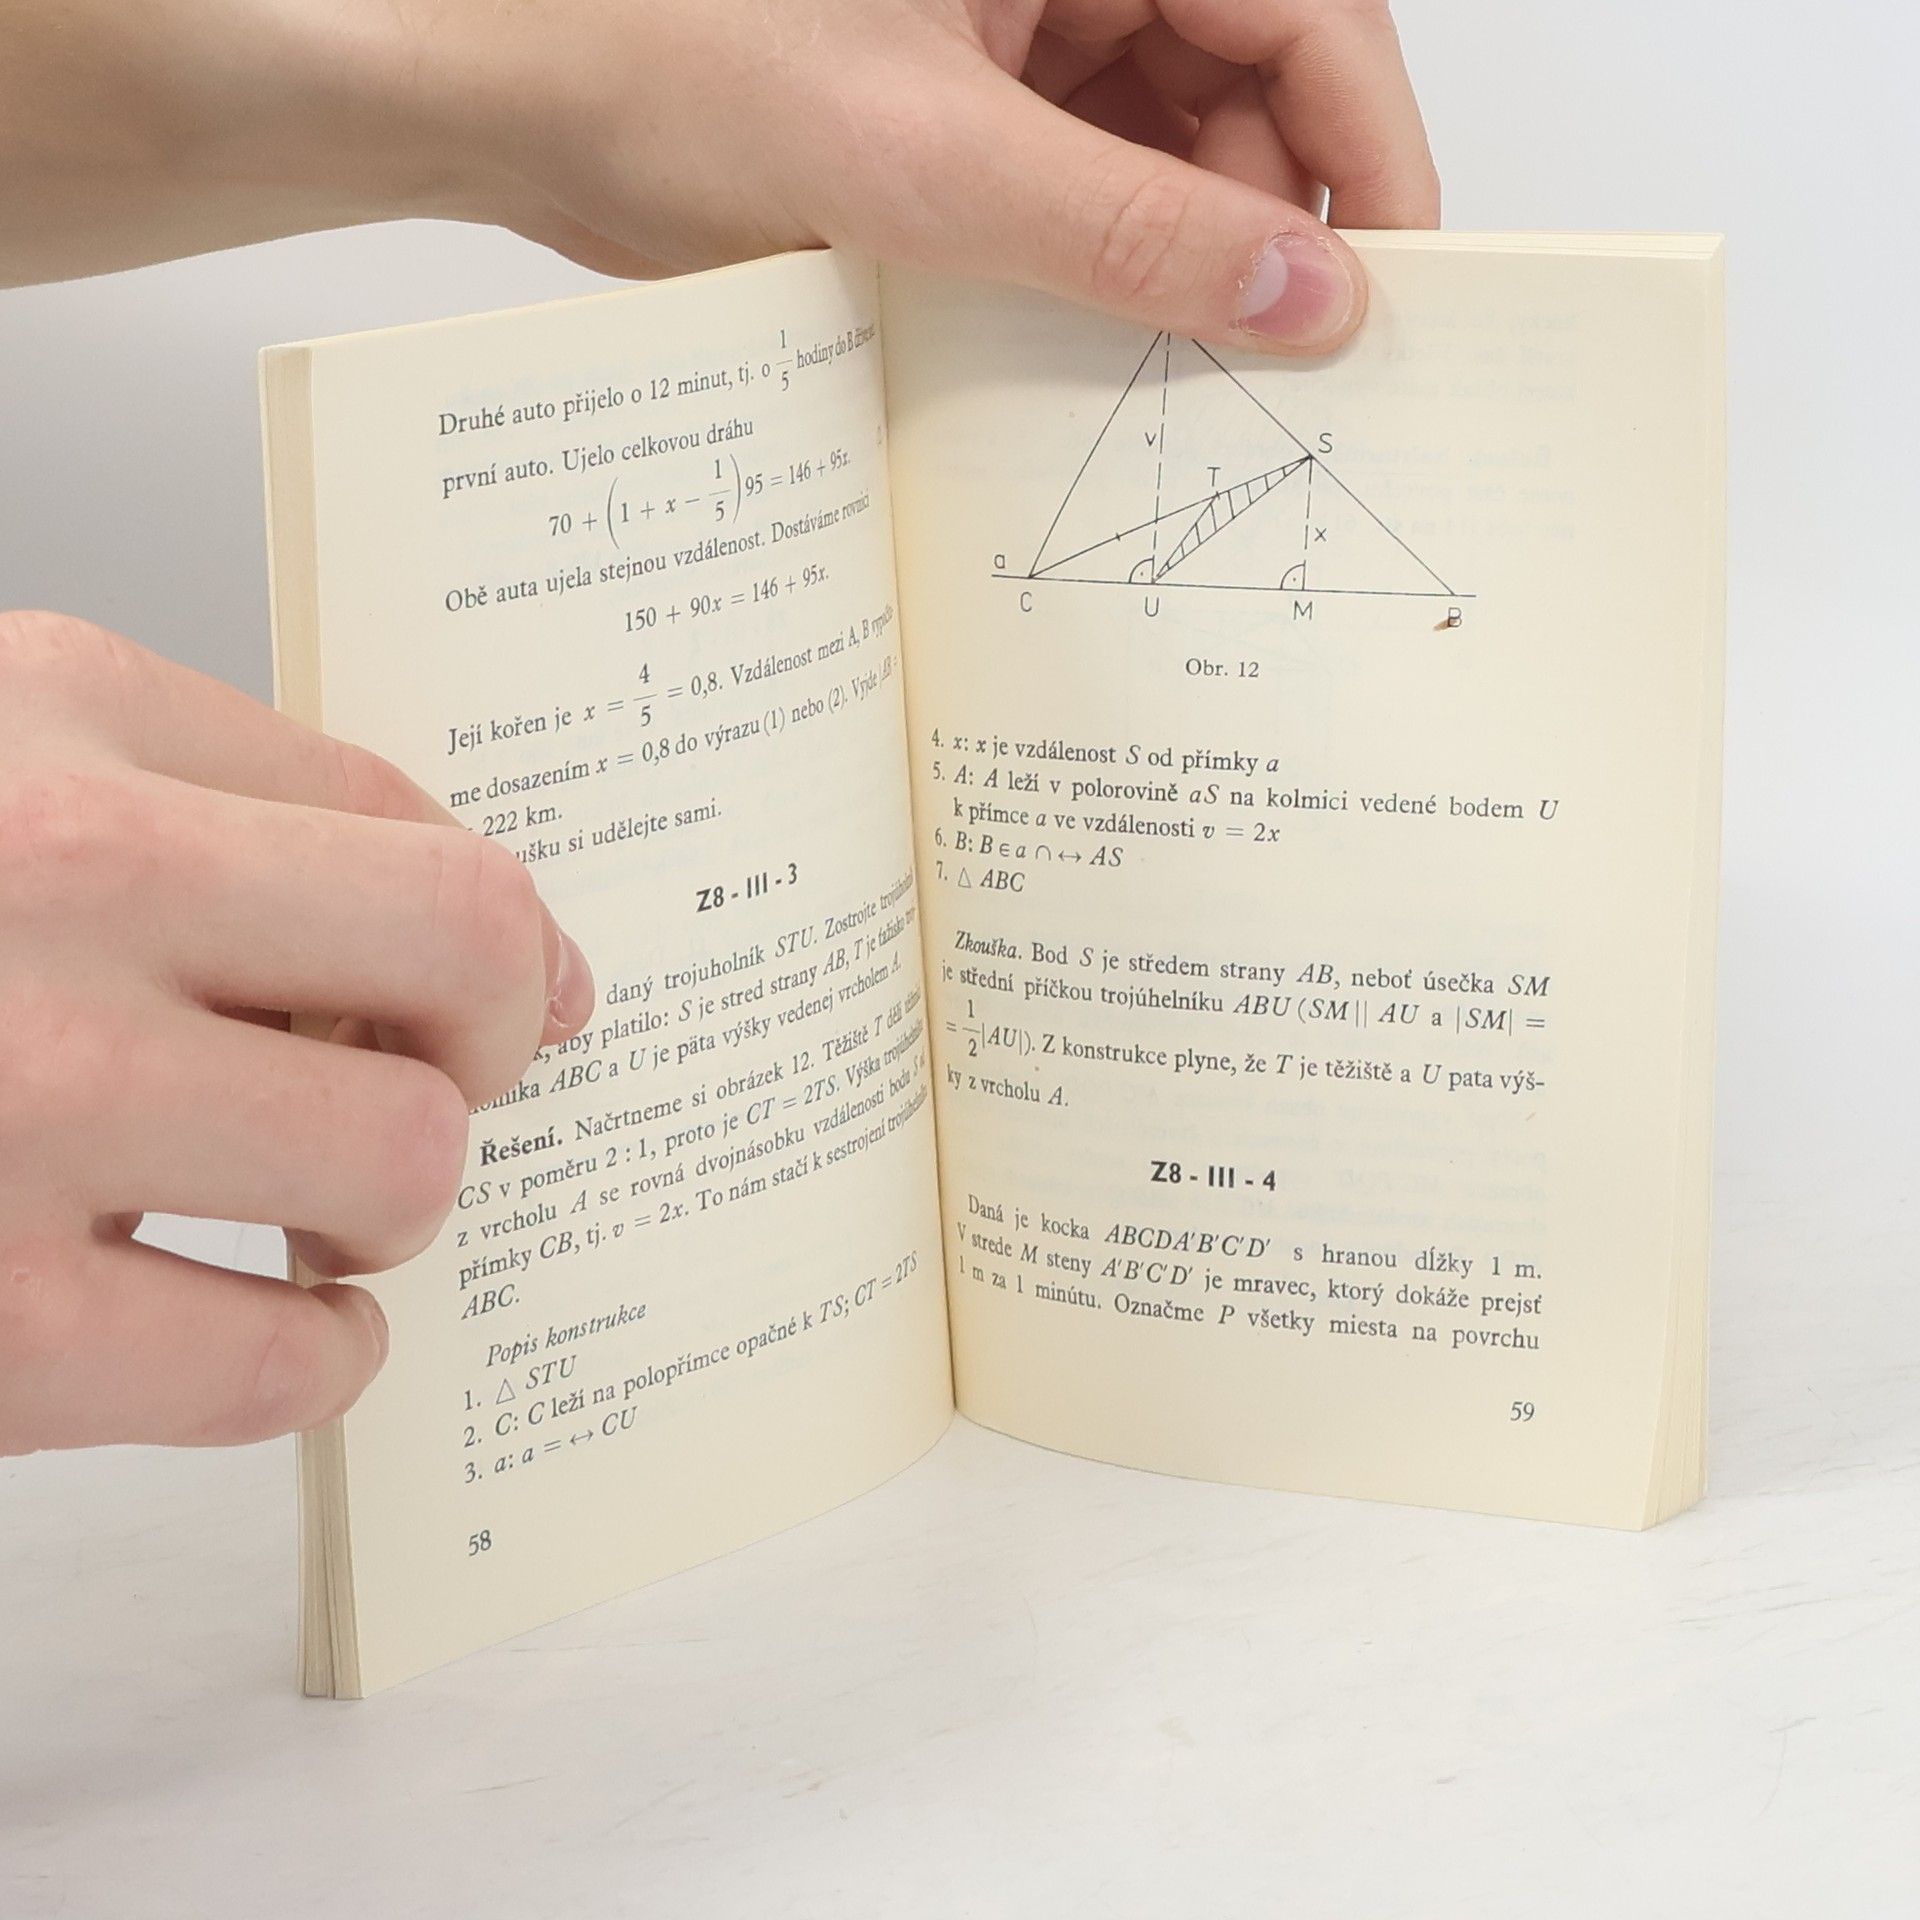 Druhé auto přijelo o 12 minut, tj. o 1/5 hodiny do B
první auto. Ujelo celkovou dráhu
70 + (1 + x − 1/5) 95 = 146 + 95x.
Obě auta ujela stejnou vzdálenost. Dostáváme rovnici
150 + 90x = 146 + 95x.
Její kořen je x = 4/5 = 0,8. Vzdálenost mezi A, B
me dosazením x = 0,8 do výrazu (1) nebo (2). Vyjde |AB| =
222 km.
si udělejte sami.
Z8 - III - 3
daný trojuholník STU. Zostrojte
aby platilo: S je stred strany AB, T je ťažisko
ABC a U je päta výšky vedenej vrcholem A.
Řešení. Načrtneme si obrázek 12. Těžiště T dělí
CS v poměru 2 : 1, proto je CT = 2TS. Výška trojúhelníku
z vrcholu A se rovná dvojnásobku vzdálenosti bodu S od
přímky CB, tj. v = 2x. To nám stačí k sestrojení trojúhelníku
ABC.
Popis konstrukce
1. △ STU
2. C: C leží na polopřímce opačné k TS; CT = 2TS
3. a: a = ↔ CU
58
v
S
T
x
a
C U M B
Obr. 12
4. x: x je vzdálenost S od přímky a
5. A: A leží v polorovině aS na kolmici vedené bodem U
k přímce a ve vzdálenosti v = 2x
6. B: B ∈ a ∩ ↔ AS
7. △ ABC
Zkouška. Bod S je středem strany AB, neboť úsečka SM
je střední příčkou trojúhelníku ABU (SM || AU a |SM| =
= 1/2|AU|). Z konstrukce plyne, že T je těžiště a U pata výš-
ky z vrcholu A.
Z8 - III - 4
Daná je kocka ABCDA′B′C′D′ s hranou dĺžky 1 m.
V strede M steny A′B′C′D′ je mravec, ktorý dokáže prejsť
1 m za 1 minútu. Označme P všetky miesta na povrchu
59